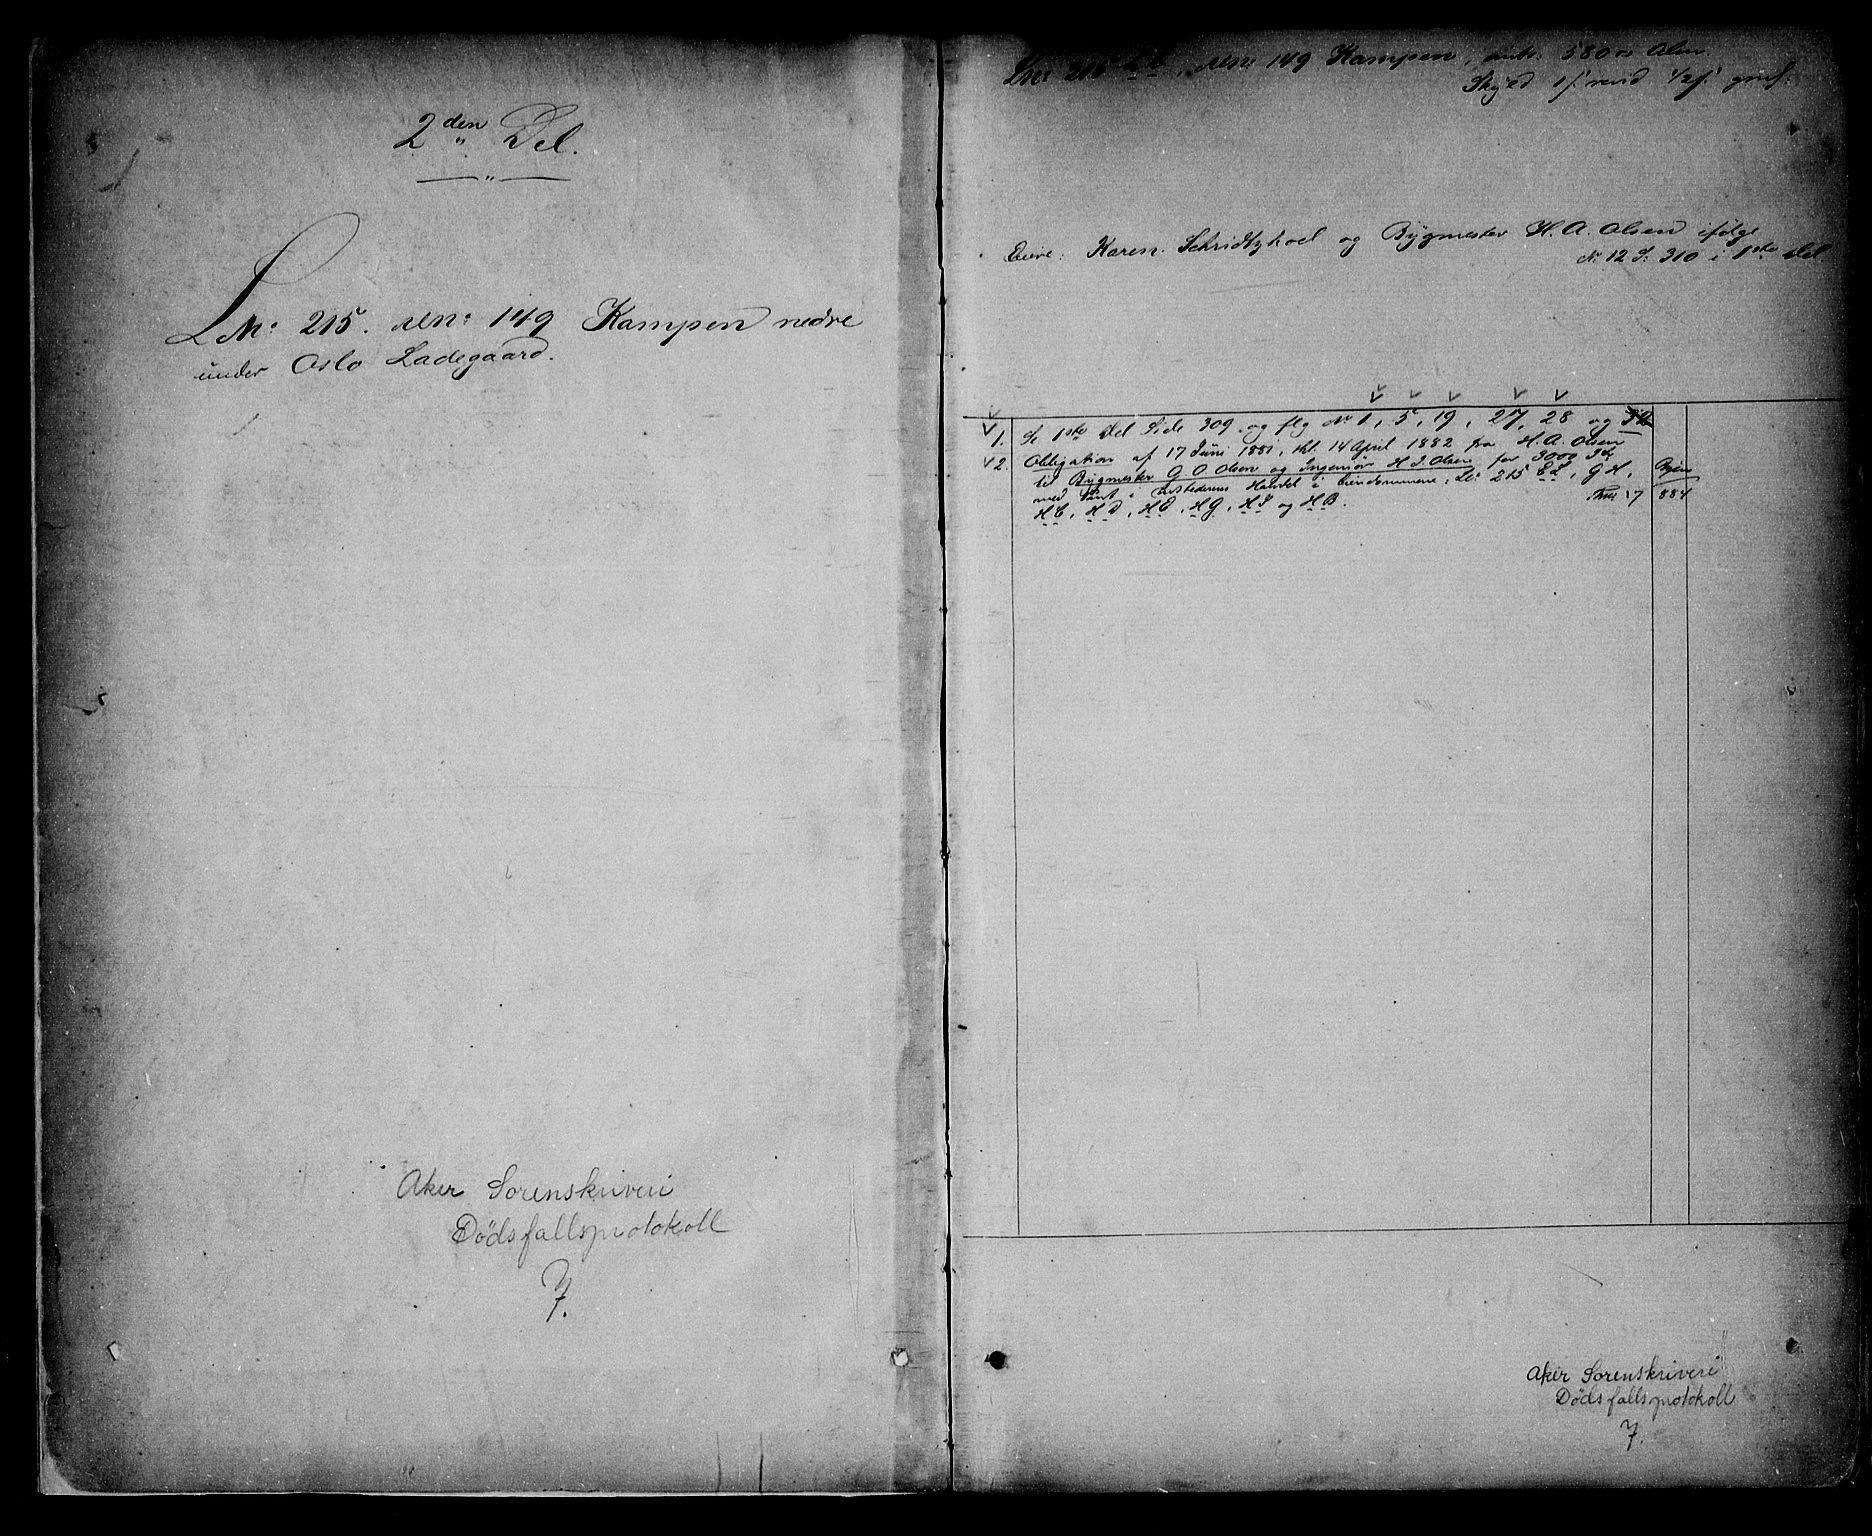 2den Del.
L.Nr: 215. MN: 149 Kampen nedre
under Oslo Ladegaard.
Aker Sorenskriveri
Dødsfallsprotokoll
7.
LNr: 215 MN: 149 Kampen, 580 □ Alen
Skyld revid
Eiere: Karen og Bygmester H. A. Olsen ifølge
Nr: 12 S: 310 i 1ste Del.
1. Se 1ste Del Side 309 og flg Nr 1, 5, 19, 27, 28 og
2. Obligation af 17 Juni 1881, thl. 14 April 1882 fra H. A. Olsen
til Bygmester O. O. Olsen og Ingeniør H. J. Olsen for 3000 Kr
med Pant i Udstederens Halvdel i Eiendommene; L: 215 E L, G H,
H C, H D, H E, H G, H F og H B. 17 884
Aker Sorenskriveri
Dødsfallsprotokoll
7.